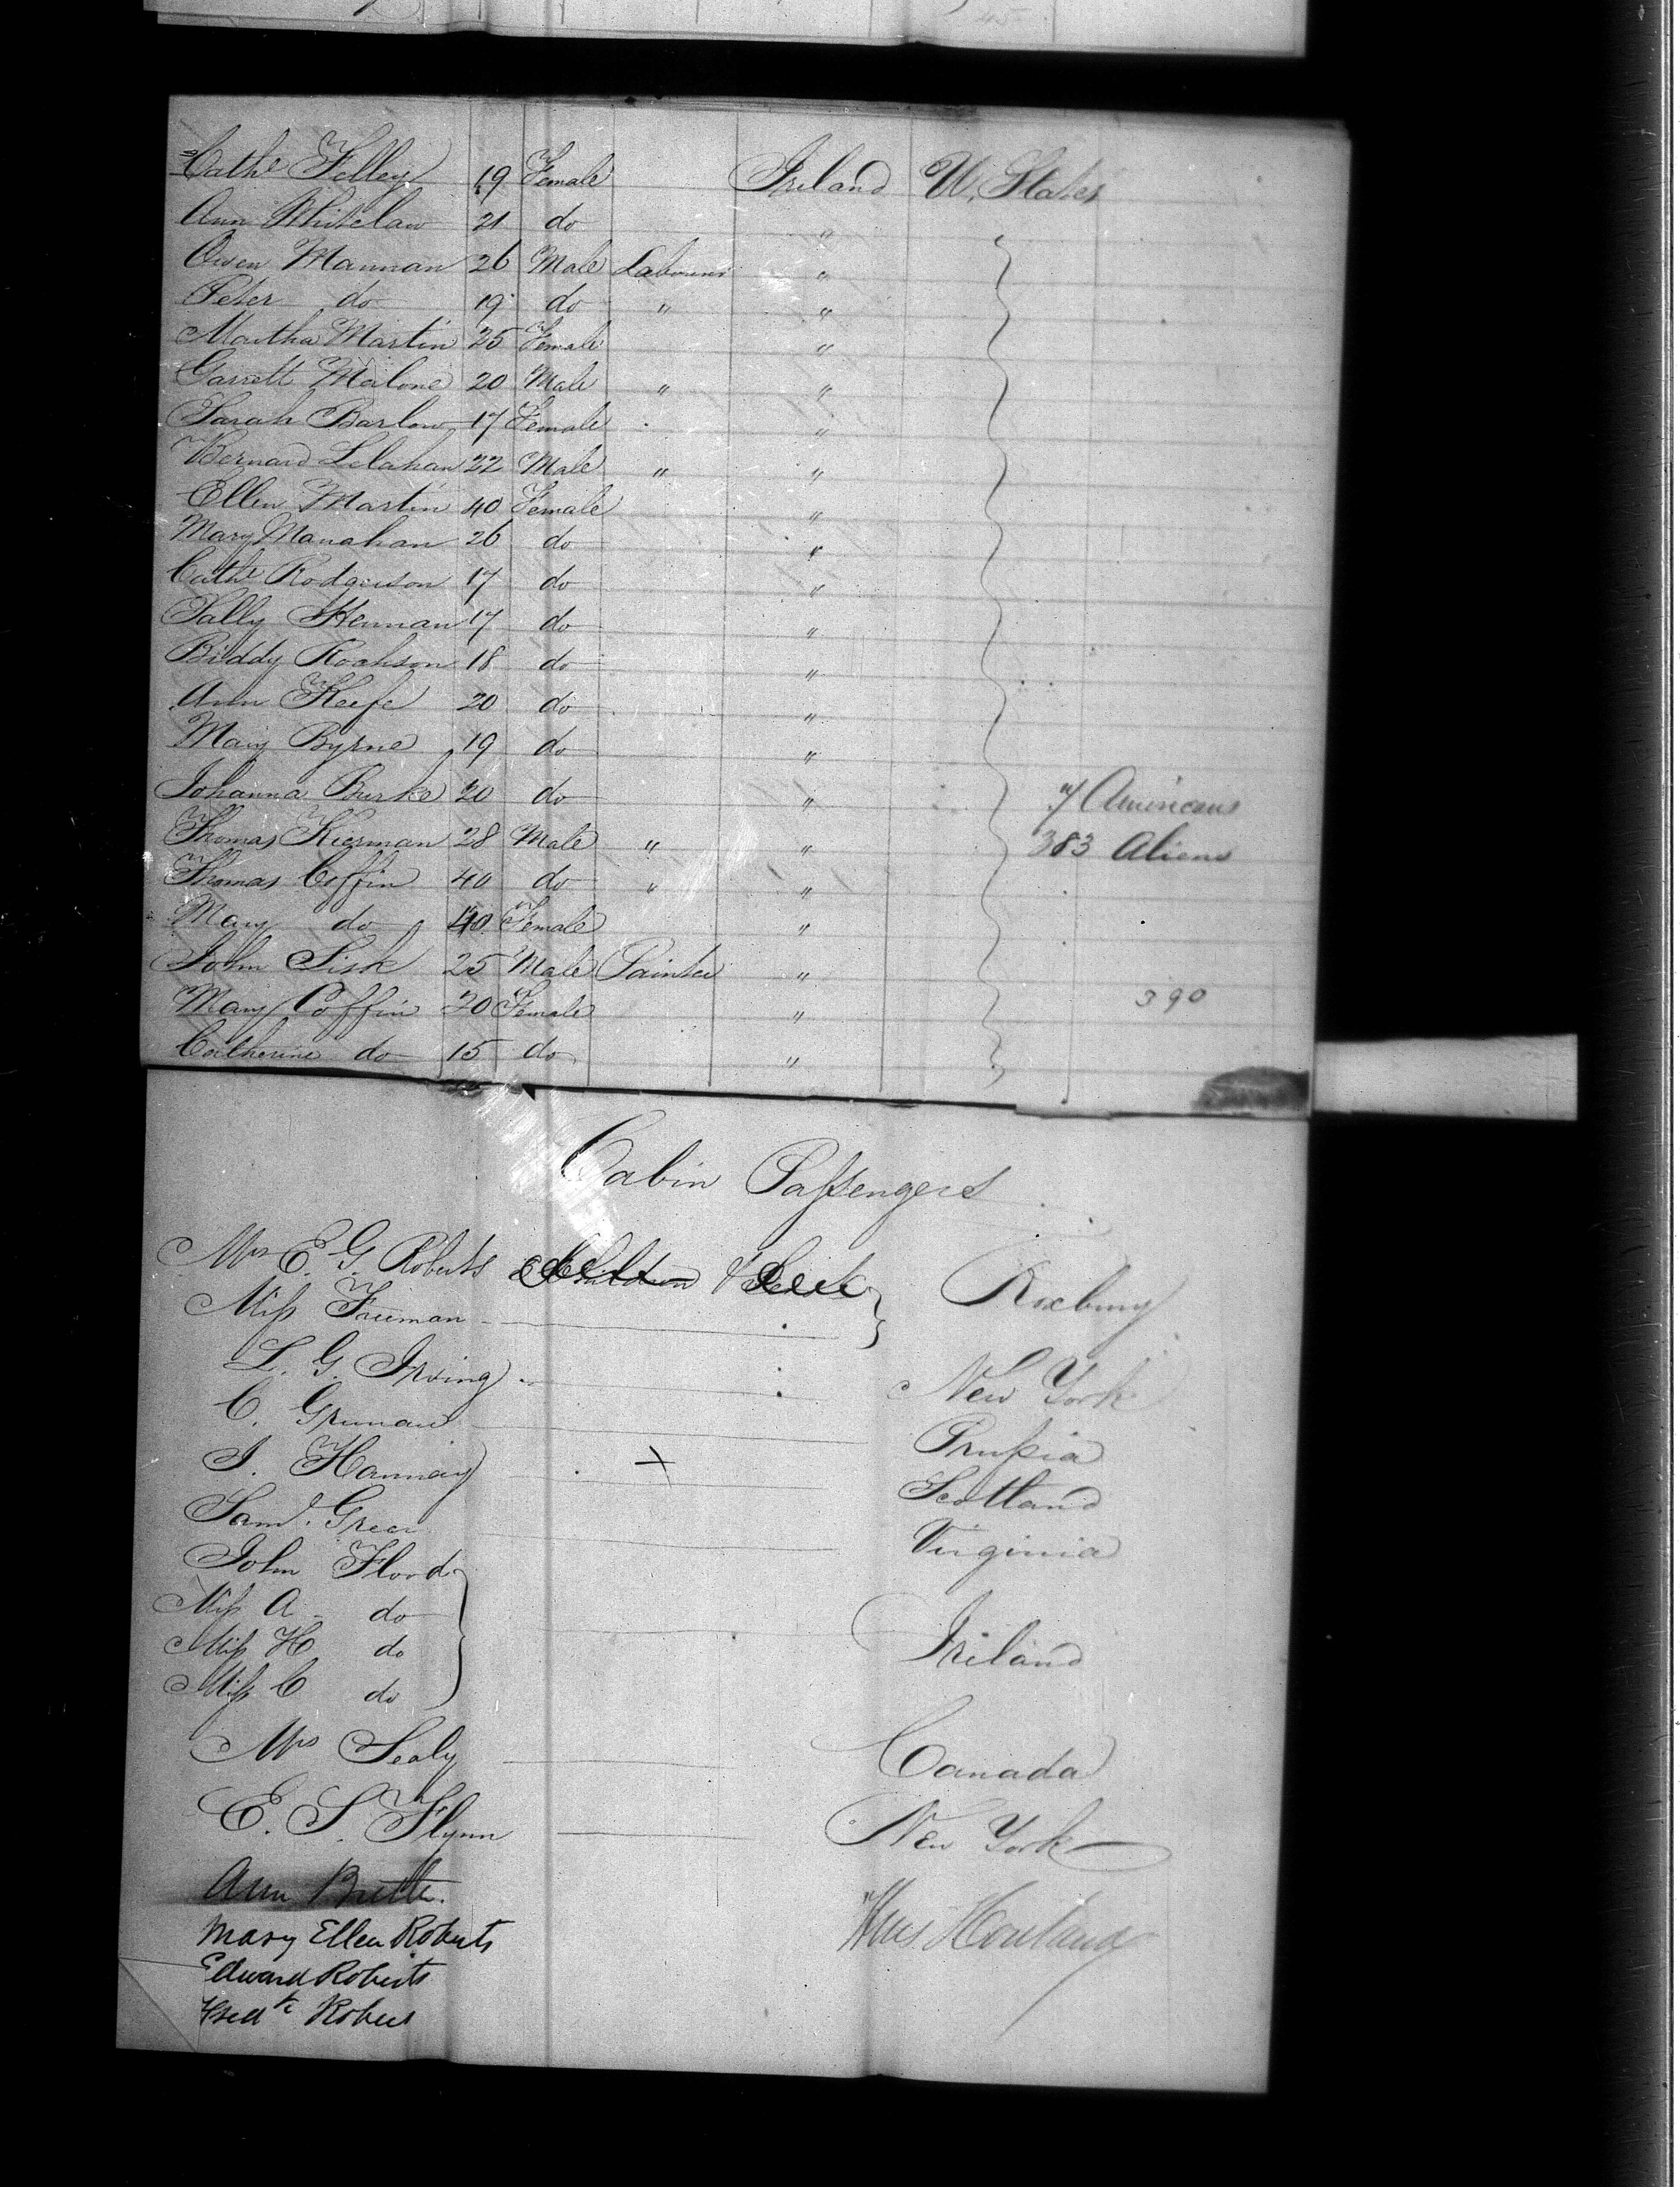 Cathe Kelley 19 Female Ireland U. States
Ann Whitelaw 21 do "
Owen Mannan 26 Male Labourer "
Peter do 19 do " "
Martha Martin 25 Female "
Garrett Malone 20 Male " "
Sarah Barlow 17 Female "
Bernard Lelahan 22 Male " "
Ellen Martin 40 Female "
Mary Manahan 26 do "
Cathe Rodgerson 17 do "
Sally Hennan 17 do "
Biddy Roahson 18 do "
Ann Keefe 20 do "
Mary Byrne 19 do "
Johanna Burke 20 do " 7 Americans
Thomas Kiernan 28 Male " " 383 Aliens
Thomas Coffin 40 do " "
Mary do 40 Female "
John Sisk 25 Male Painter "
Mary Coffin 20 Female " 390
Catherine do 15 do "
Cabin Passengers
Mrs E. G. Roberts Roxbury
Miss Freeman
L. G. Irving New York
C. Gruman Prussia
J. Hannay × Scotland
Saml. Greer Virginia
John Flood
Miss A do
Miss H do Ireland
Miss C do
Mrs Sealy Canada
E. S. Flynn New York
Ann
Mary Ellen Roberts
Edward Roberts
Fredk Roberts